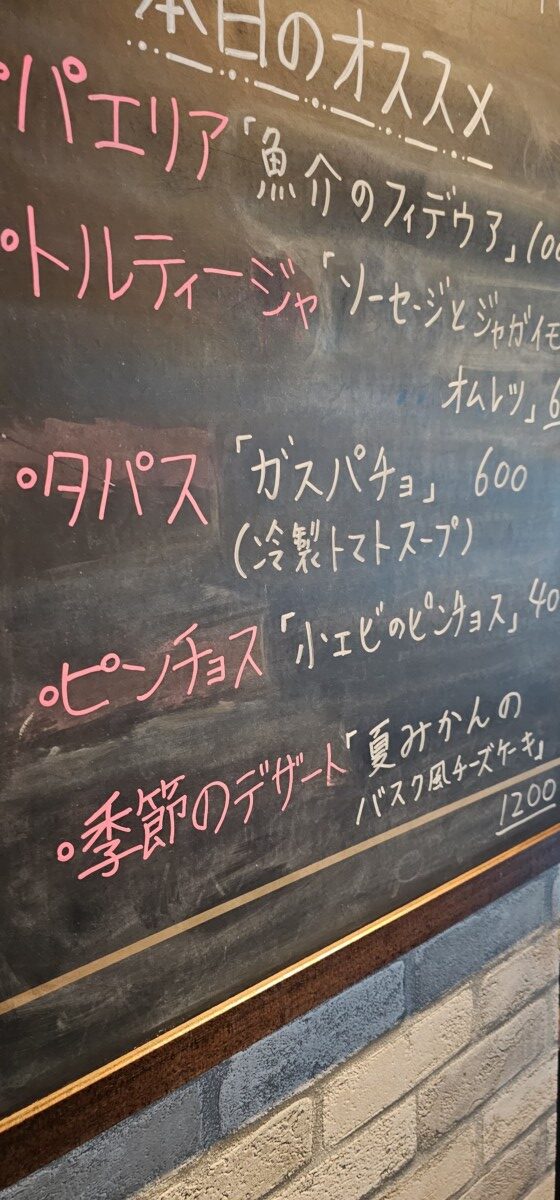 本日のオススメ
・パエリア「魚介のフィデウア」100
・トルティージャ「ソーセージとジャガイモ
オムレツ」6
・タパス「ガスパチョ」 600
(冷製トマトスープ)
・ピンチョス「小エビのピンチョス」40
・季節のデザート「夏みかんの
バスク風チーズケーキ」
1200